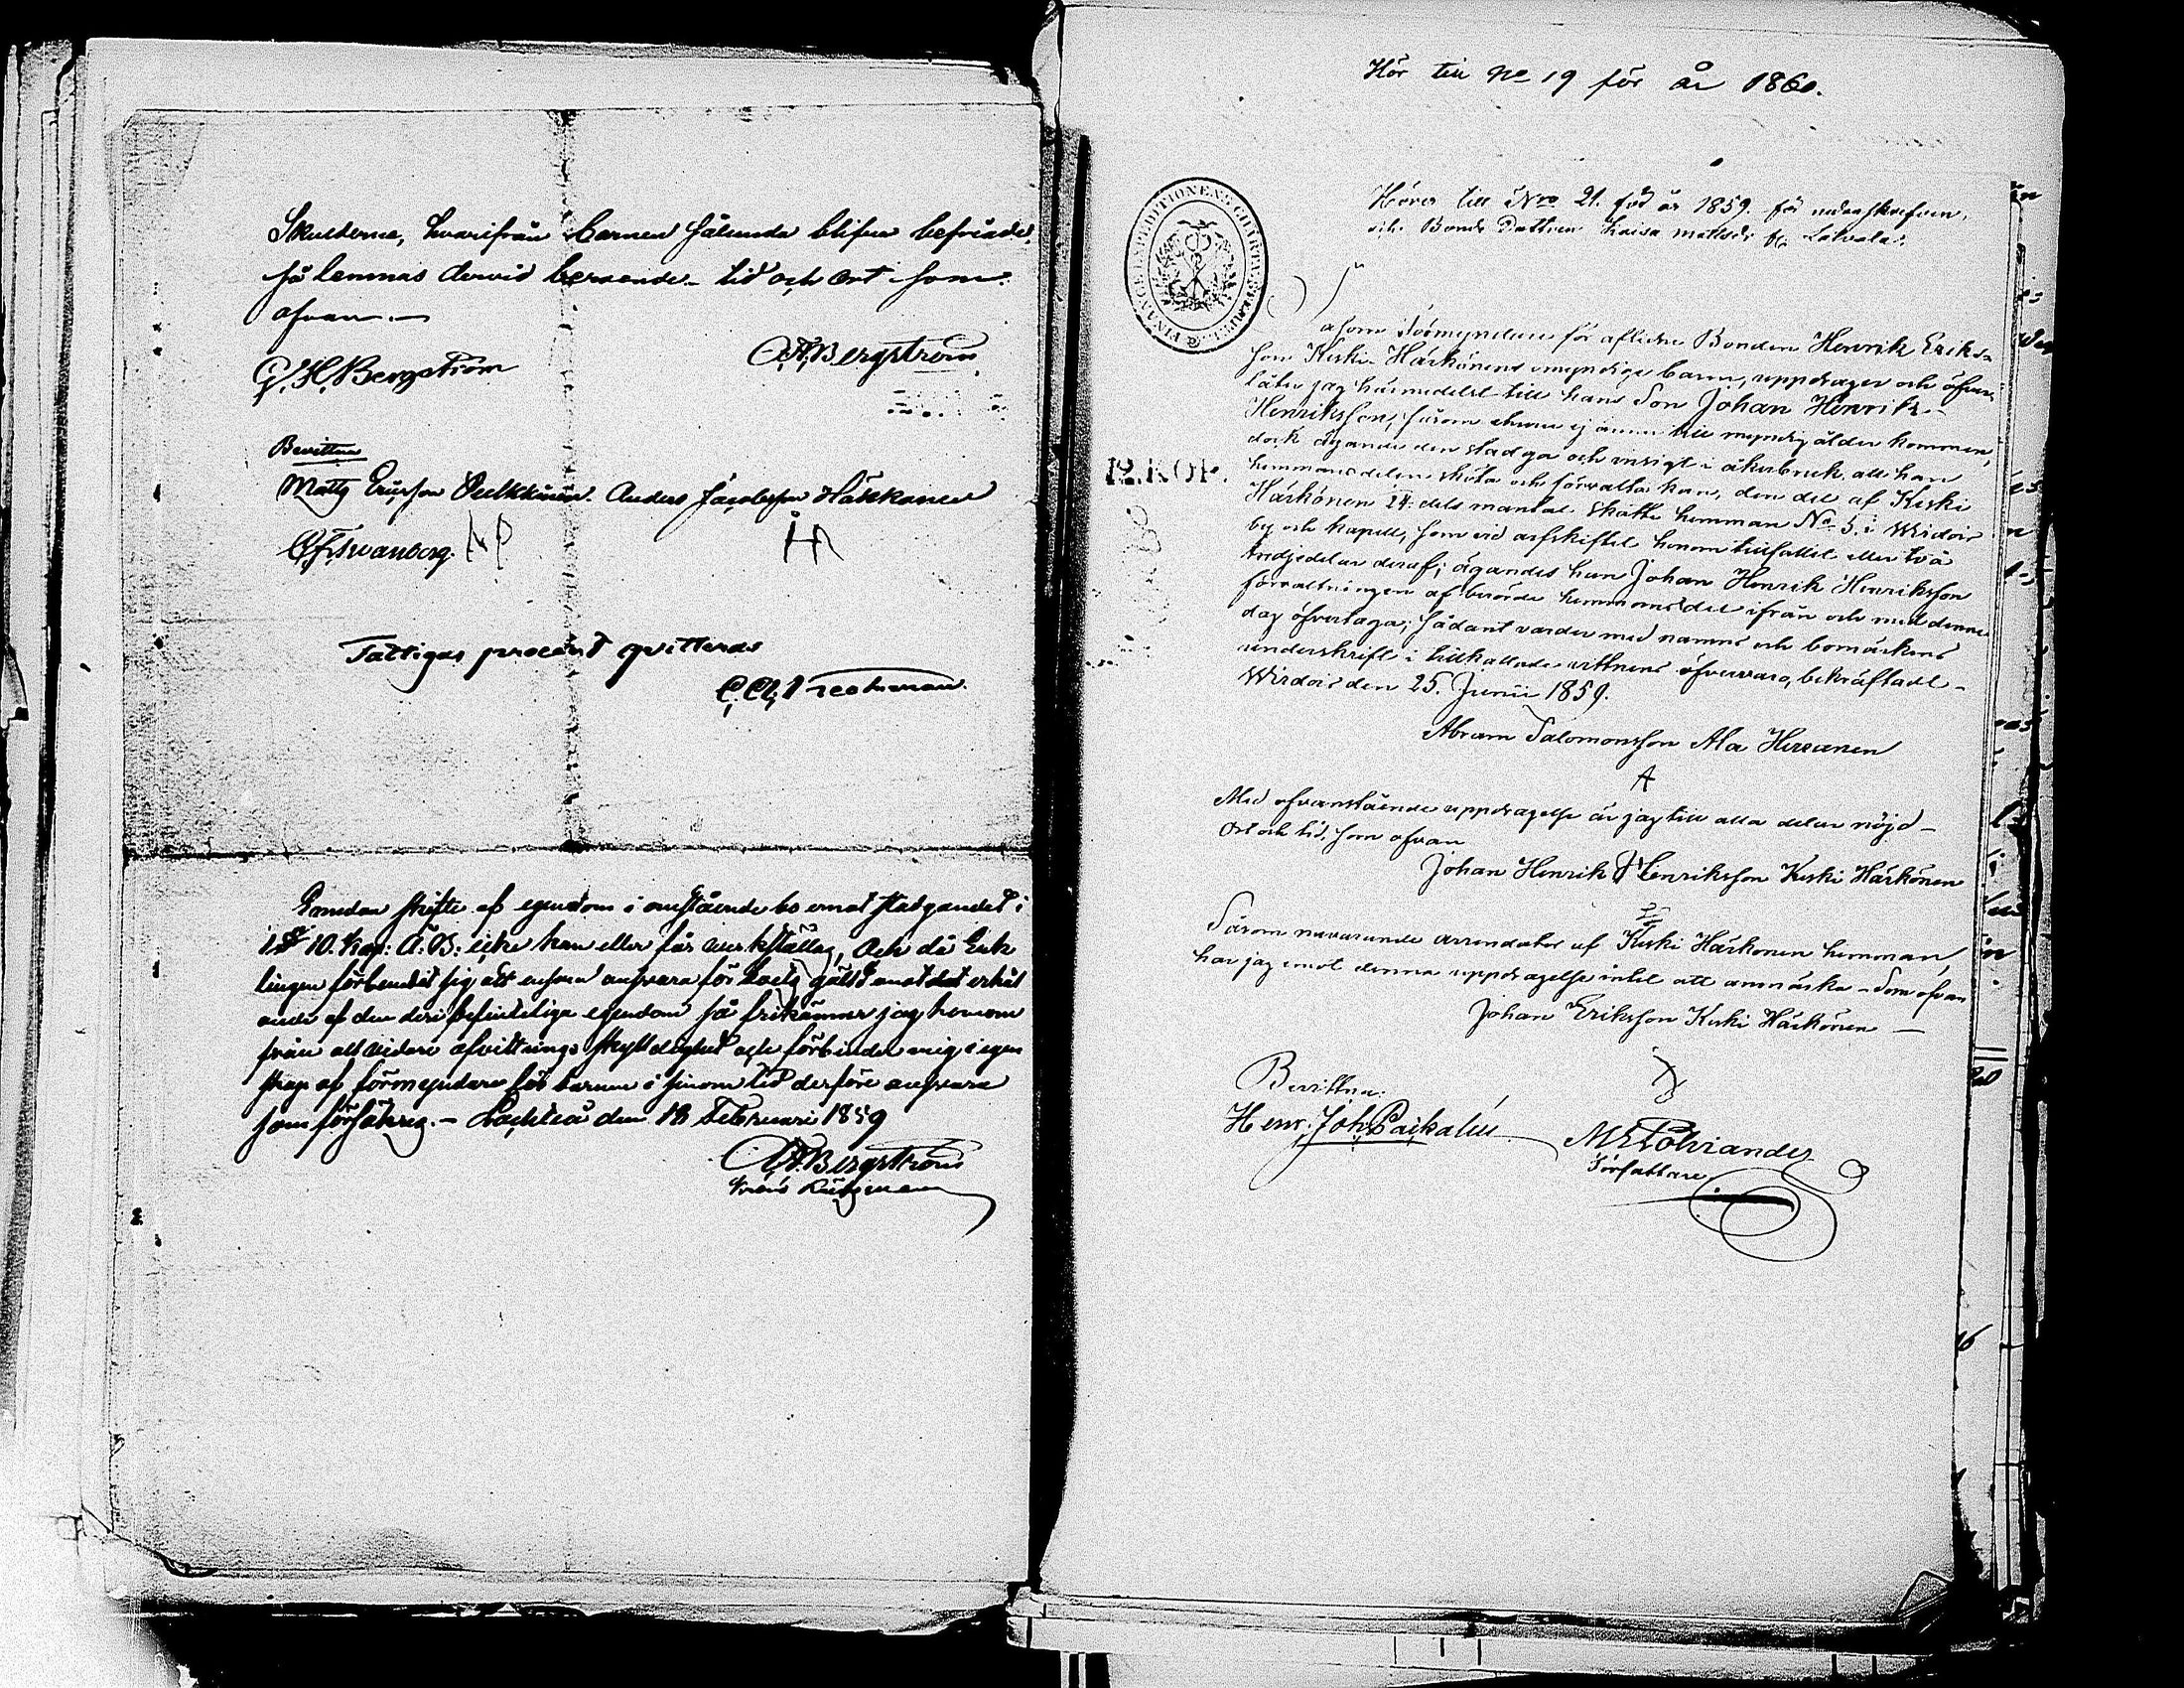 Skulderna, hvarifrån barnen sålunda blifva befriade,
så lemnas dervid beroende. tid och ort som
ofvan.—
G. H. Bergström
A. Bergström
Bevittna
Matts Ericsson Pulkkinen. Anders Jacobsson Häkkänen
C. F. Svanberg.
Fattigas procent qvitteras
Emedan skifte af egendom i omstående bo emot stadgandet i
1 § 10. Kap: Ä: B: icke kan eller får verkställas, och då Enk
lingen förbundit sig att ensam ansvara för boets gäld emot det erhål
ande af den deri befintliga egendom så frikänner jag honom
från all vidare afvittrings skyldighet och förbinder mig i egen
skap af förmyndare för barnen i sinom tid derföre ansvara
som för . — den 18 Februari 1859
A. Bergström
Hör till No 19 för år 1860.
Hörer till Nro 21. för år 1859. för
Bonde Dottren Kaisa Mattsdr fr. Latvala.
FINANCE EXPEDITIONENS CHARTÆ STEMPEL
12. KOP.
Såsom Förmyndare för aflidne Bonden Henrik Eriks-
son Keski-Härkönens omyndige barn, uppdrager och öfver-
låter jag härmedelst till hans Son Johan Henrik
Henriksson, såsom ehuru ej ännu till myndig ålder kommen,
dock ägande den stadga och insigt i åkerbruk, att han
hemmansdelen sköta och förvalta kan, den del af Keski
Härkönen 24:dels mantal Skatte hemman No 5. i Wirdois
by och kapell, som vid arfskiftet honom tillfallit eller två
tredjedelar deraf; ägandes han Johan Henrik Henriksson
förvaltningen af berörde hemmansdel ifrån och med denne
dag öfvertaga; sådant varder med namns och bomärkens
underskrift i tillkallade vittnens öfvervaro, bekräftadt —
Wirdois den 25. Junii 1859.
Abram Salomonsson Ala Hirranen
A
Med ofvanstående uppdragelse är jag till alla delar nöjd —
Ort och tid, som ofvan
Johan Henrik Henriksson Keski Härkönen
Såsom nuvarande arrendator af Keski Härkönen hemman,
har jag emot denna uppdragelse intet att anmärka — Som ofvan
Johan Eriksson Keski Härkönen —
Bevittna:
Henr. Joh. Paikalin
Författare